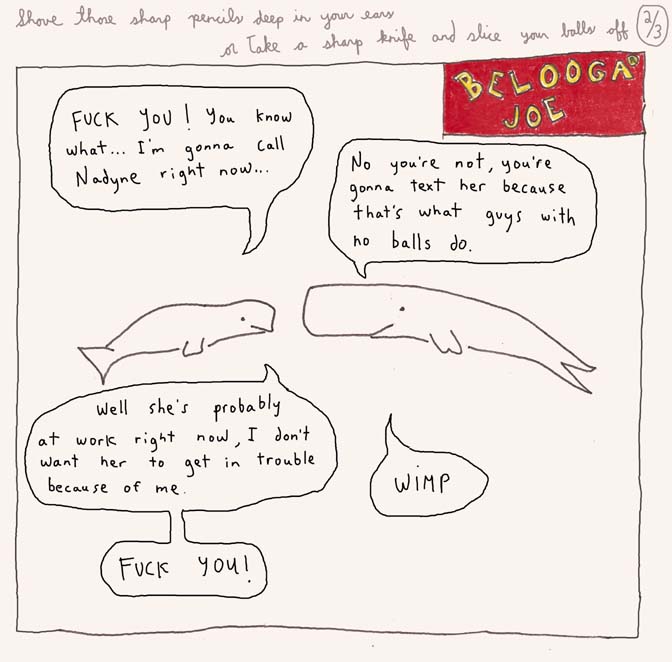 Shove those sharp pencils deep in your ears
or Take a sharp knife and slice your balls off
2/3
BELOOGA
JOE
FUCK YOU! You know
what... I'm gonna call
Nadyne right now...
No you're not, you're
gonna text her because
that's what guys with
no balls do.
Well she's probably
at work right now, I don't
want her to get in trouble
because of me.
WIMP
FUCK YOU!